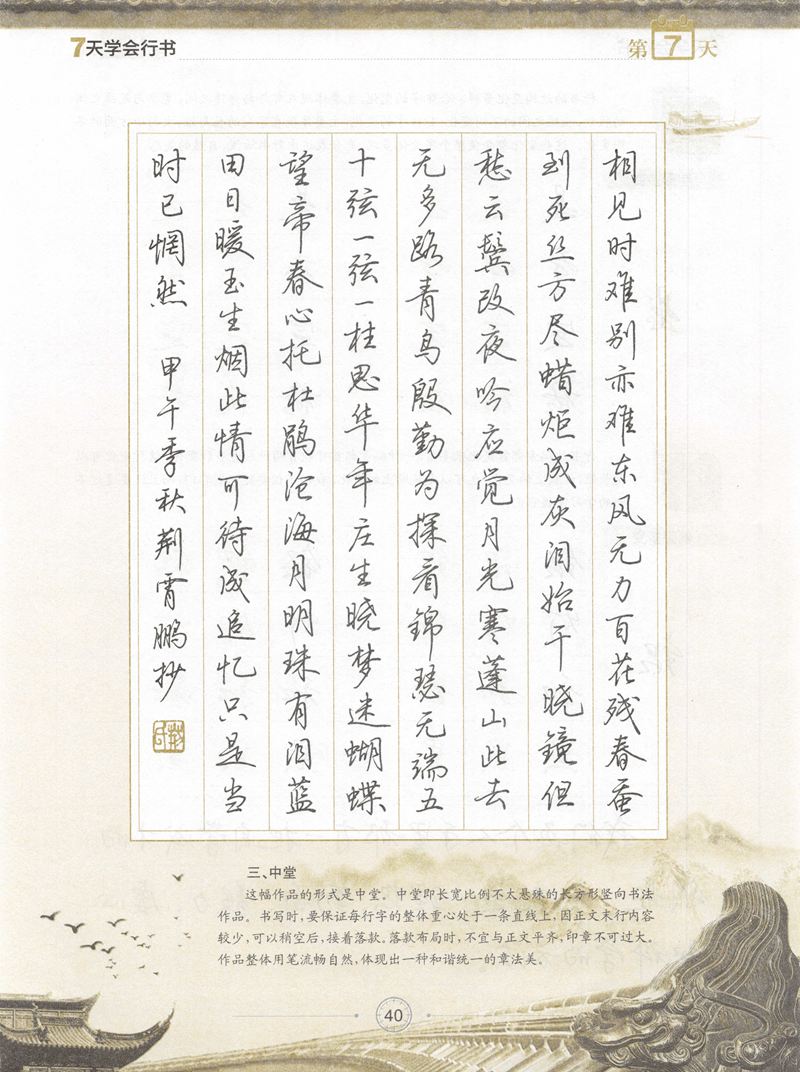 7天学会行书
第7天
相见时难别亦难东风无力百花残春蚕
到死丝方尽蜡炬成灰泪始干晓镜但
愁云鬓改夜吟应觉月光寒蓬山此去
无多路青鸟殷勤为探看锦瑟无端五
十弦一弦一柱思华年庄生晓梦迷蝴蝶
望帝春心托杜鹃沧海月明珠有泪蓝
田日暖玉生烟此情可待成追忆只是当
时已惘然 甲午季秋荆霄鹏抄
三、中堂
这幅作品的形式是中堂。中堂即长宽比例不太悬殊的长方形竖向书法
作品。书写时,要保证每行字的整体重心处于一条直线上,因正文末行内容
较少,可以稍空后,接着落款。落款布局时,不宜与正文平齐,印章不可过大。
作品整体用笔流畅自然,体现出一种和谐统一的章法美。
40